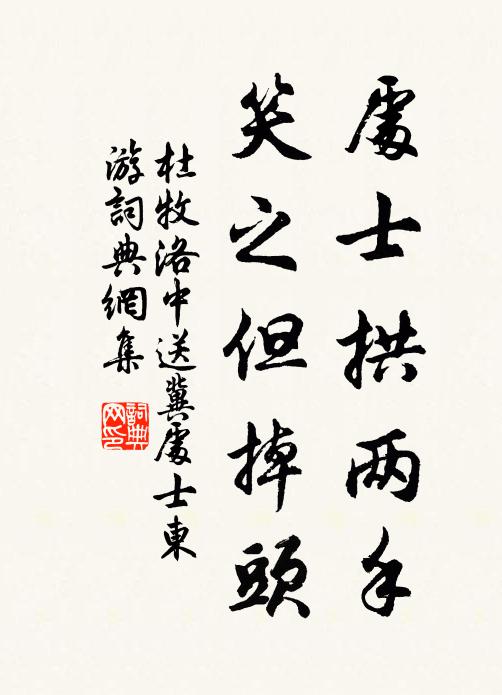 處士拱两手
笑之但掉頭
杜牧洛中送冀處士東
游詞典網集
詞典
网印